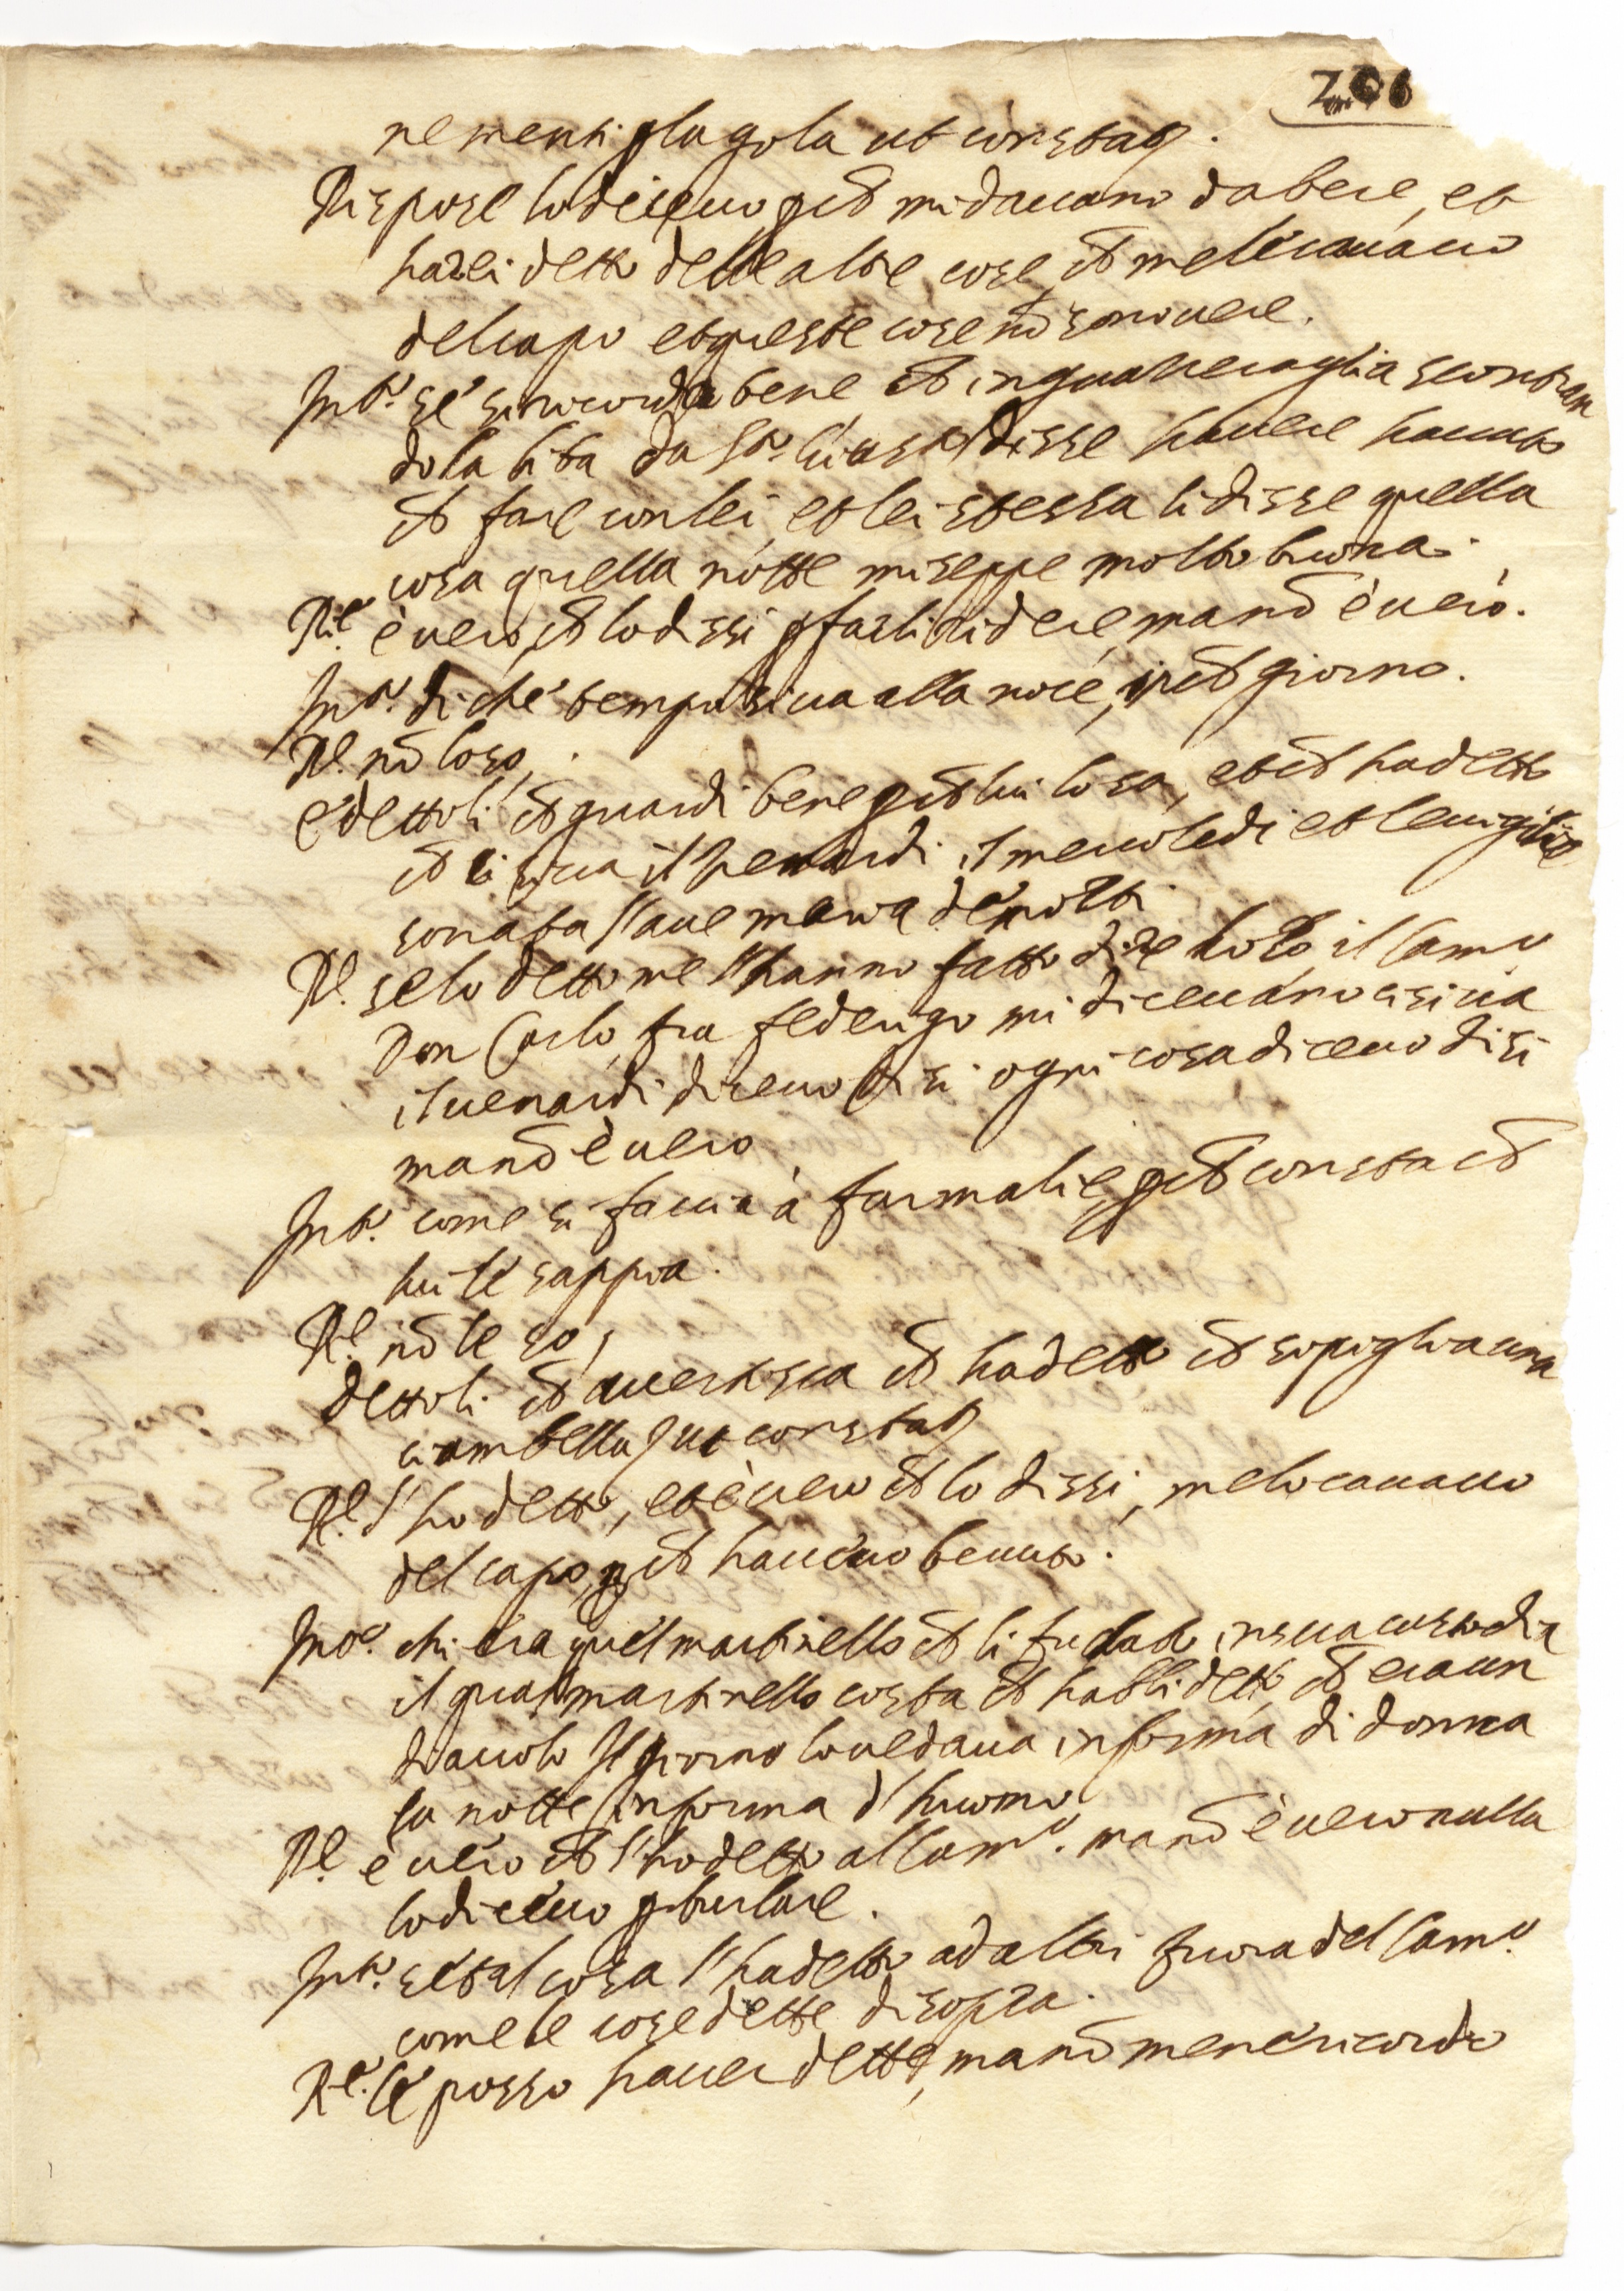 206
ne menti p la gola ut constat
Rispose lo diceuo, p ch mi dauano da bere, et
hogli detto delle altre cose, ch me le cauauo
del capo et queste cose nō sono uere.
Int.º se si ricorda bene ch in guaneraglia scontran
dola lita da disse hauere hauuto
ch fare con lei, et lei stessa li disse quella
cosa quella notte mi seppe molto buona.
R.e è uero, ch lo dissi p farli ridere, ma nō è uero.
Int.º di che tempo si ua alla noce, i ch giorno.
R.e nō lo so,
e dettoli ch guardi bene p ch lui lo sa, et ch ha detto
ch ci si ua il uenardi, il mercoledi et le uigilie
sonata l'aue maria de notti
R.e se lo detto me l'hanno fatto dire loro il Cam.º
Don Carlo, fra federigo mi diceuano ci si ua
il uenardi diceuo di si ogni cosa diceuo di si
ma nō è uero
Int.º come si faccia à far malie, p ch consta ch
lui le sappia.
R.e nō le so,
dettoli ch auertisca ch ha detto ch si piglia una
ciambella ut constat
R.e l'ho detto, et è uero ch lo dissi, me lo cauauo
del capo, p ch haueuo beuuto.
Int.º chi era quel martinello ch li fu dato in sua custodia
il qual martinello costa ch habbi detto, ch era un
diauolo il giorno lo uedaua in forma di donna
la notte in forma d'huomo
R.e è uero ch l'ho detto al Cam.º ma nō è uero nulla
lo diceuo p burlare.
Int.º se tal cosa l'ha detto ad altri fuora del Cam.º
come le cose dette di sopra.
R.e le posso hauer dette, ma nō me ne ricordo